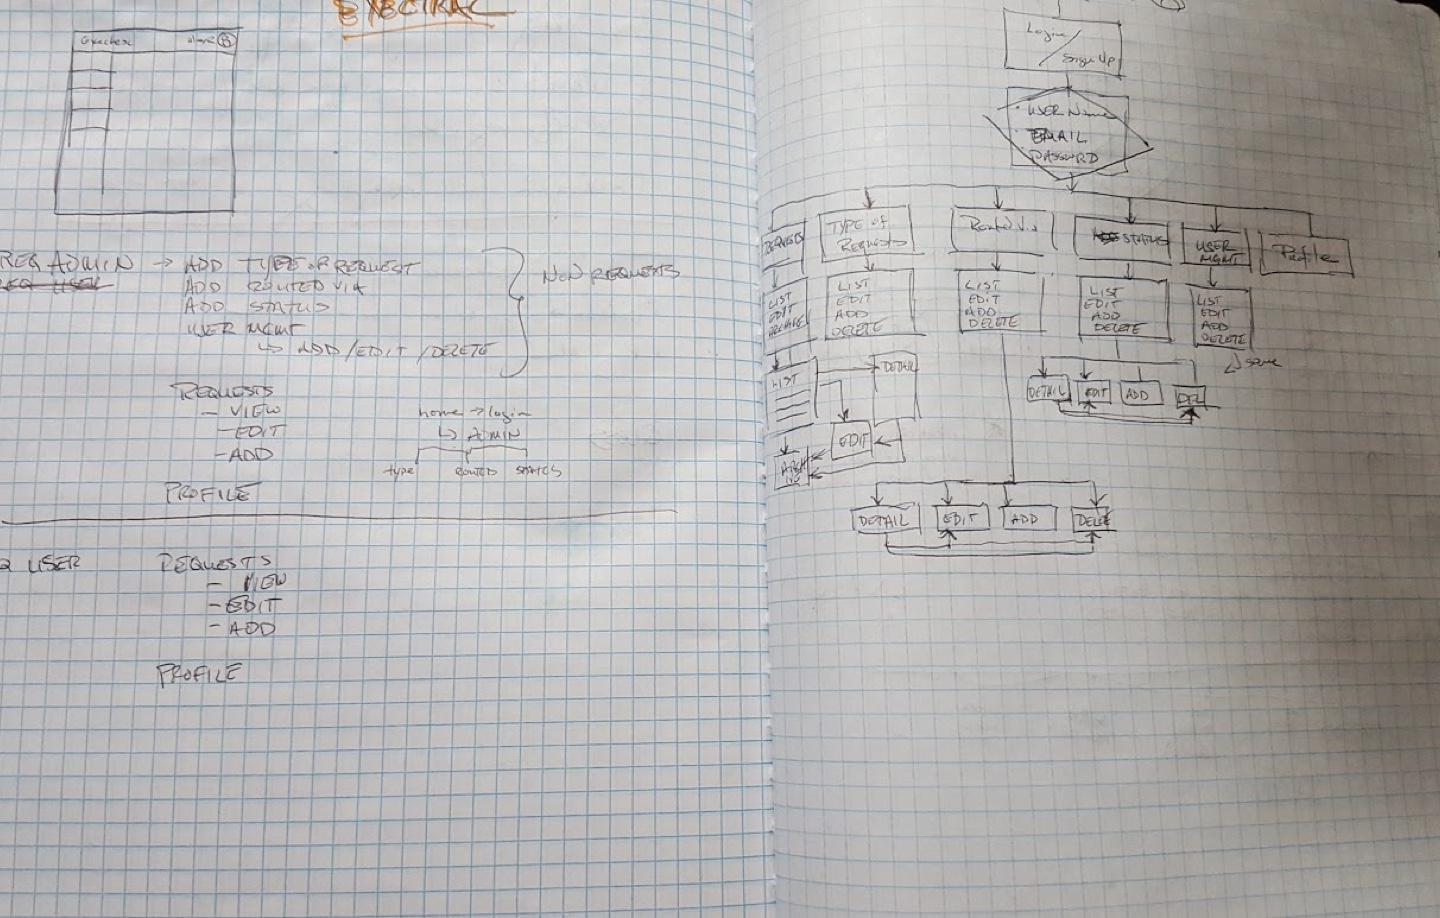 REQ ADMIN → ADD TYPE OF REQUEST
REQ USER
ADD ROUTED VIA
ADD STATUS
USER MGMT
↳ ADD / EDIT / DELETE
NON REQUESTS
REQUESTS
- VIEW
- EDIT
- ADD
home → login
↳ ADMIN
type ROUTED STATUS
PROFILE
USER REQUESTS
- VIEW
- EDIT
- ADD
PROFILE
Login
/ Sign Up
· USER Name
· EMAIL
· PASSWRD
REQUESTS
LIST
EDIT
ARCHIVE
LIST
DETAIL
EDIT
ARCH
IVE
TYPE OF
Requests
LIST
EDIT
ADD
DELETE
Routed Via
LIST
EDIT
ADD
DELETE
DETAIL EDIT ADD DELETE
STATUS
LIST
EDIT
ADD
DELETE
DETAIL EDIT ADD DEL
USER
MGMT
LIST
EDIT
ADD
DELETE
same
Profile